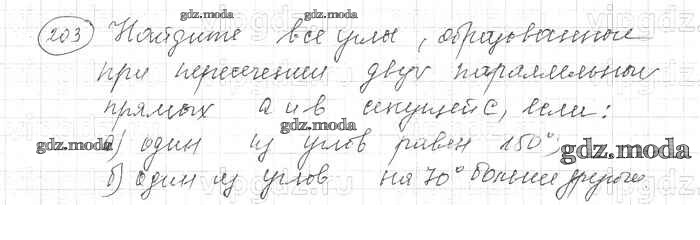 gdz.moda
203 Найдите все углы, образованные
при пересечении двух параллельных
прямых а и в секущей С, если:
gdz.moda
а) один из углов равен 150°;
gdz.moda gdz.moda
б) один из углов на 70° больше другого
gdz.moda